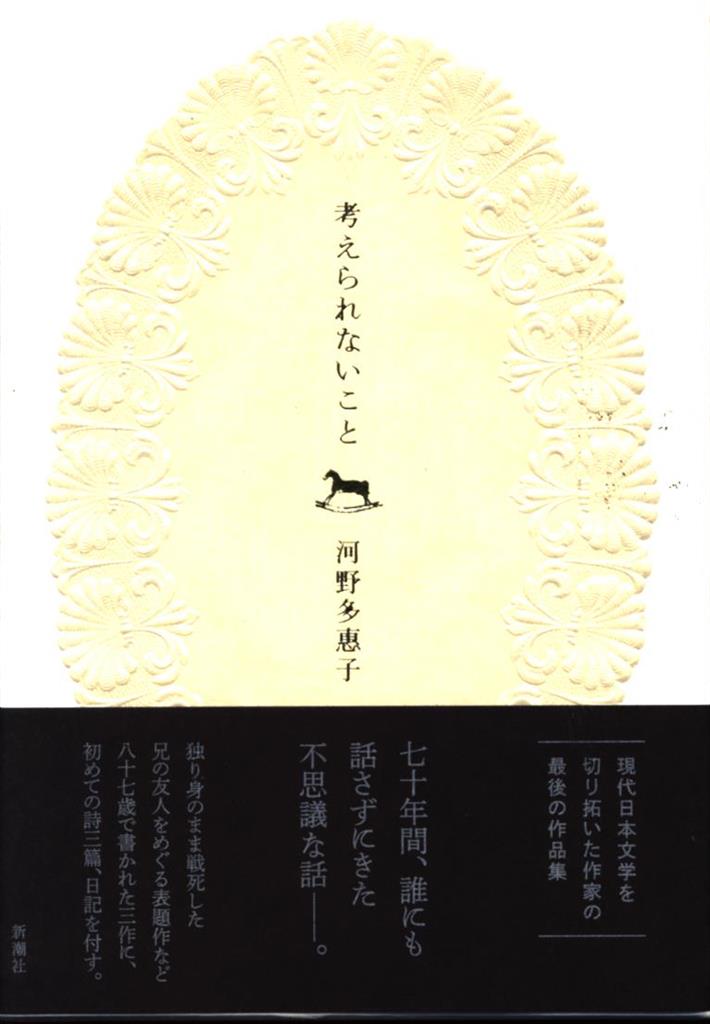 考えられないこと
河野多惠子
現代日本文学を
切り拓いた作家の
最後の作品集
七十年間、誰にも
話さずにきた
不思議な話——。
独り身のまま戦死した
兄の友人をめぐる表題作など
八十七歳で書かれた三作に、
初めての詩三篇、日記を付す。
新潮社